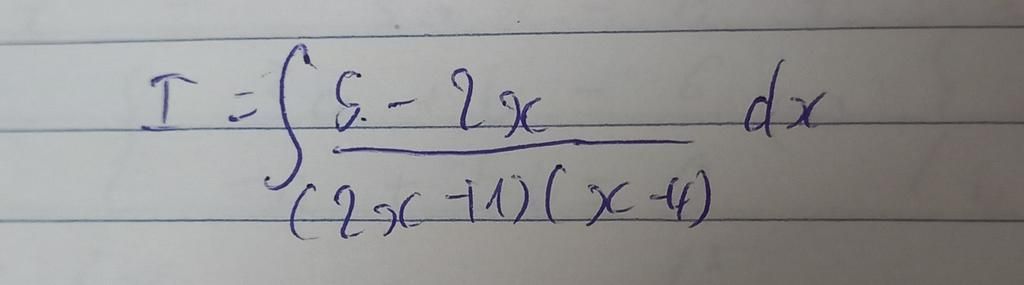 I = ∫ (5 - 2x) / ((2x + 1)(x - 4)) dx